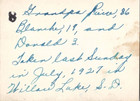 Grandpa Rice, 86
Blanche 19, and
Donald 3.
Taken last Sunday
in July, 1921 in
Willow Lake, S.D.